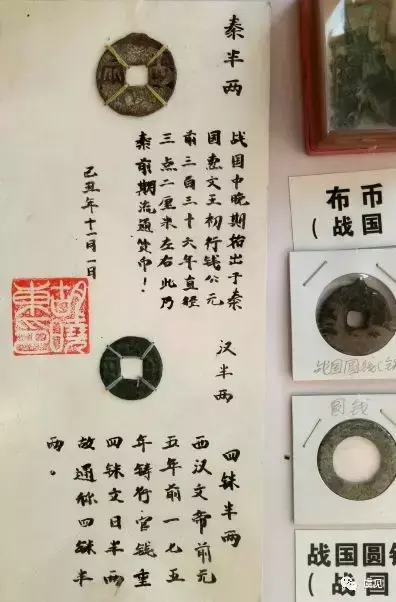 秦半两
战国中晚期始出于秦
国惠文王初行钱公元
前三百三十六年直径
三点二厘米左右此乃
秦前期流通货币！
己丑年十一月一日
汉半两
四铢半两
西汉文帝前元
五年前一七五
年铸行官钱重
四铢文曰半两
故通称四铢半
两。
布币
（战国
战国圆钱
圆钱
战国圆钱
（战国